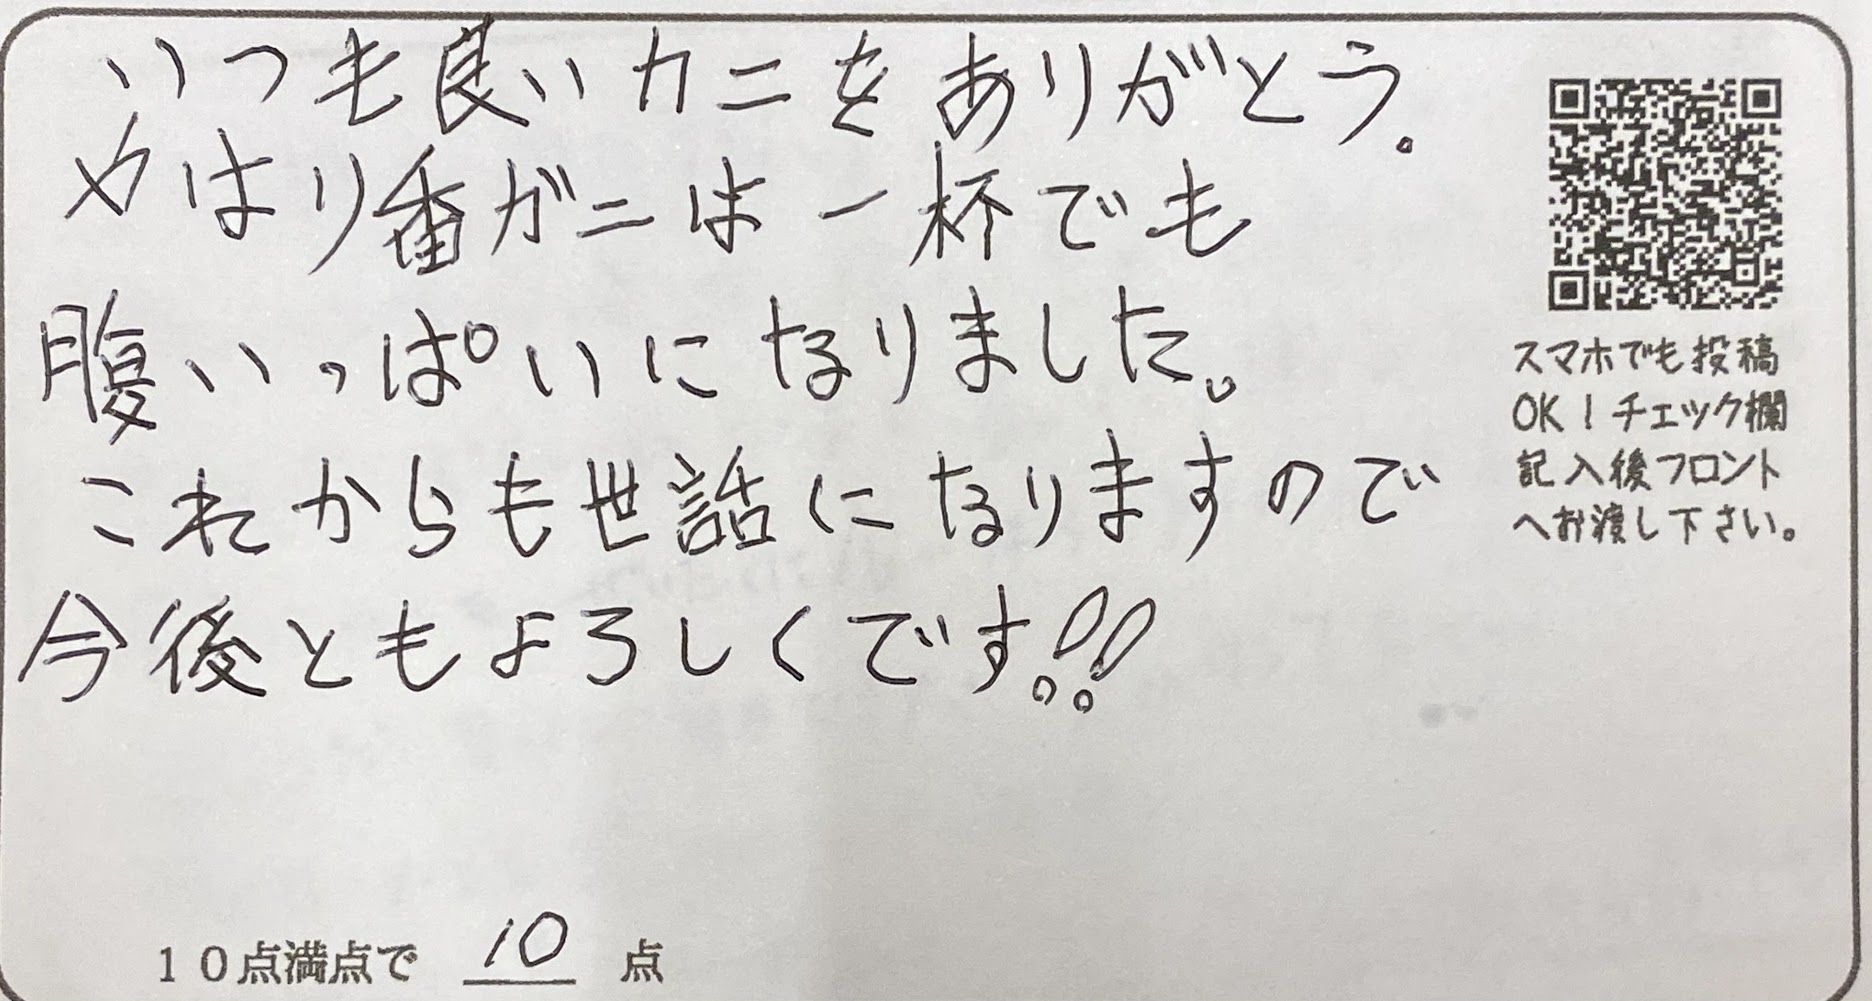 いつも良いカニをありがとう。
やはり番ガニは一杯でも
腹いっぱいになりました。
これからも世話になりますので
今後ともよろしくです。!!
スマホでも投稿
OK！チェック欄
記入後フロント
へお渡し下さい。
10点満点で 10 点